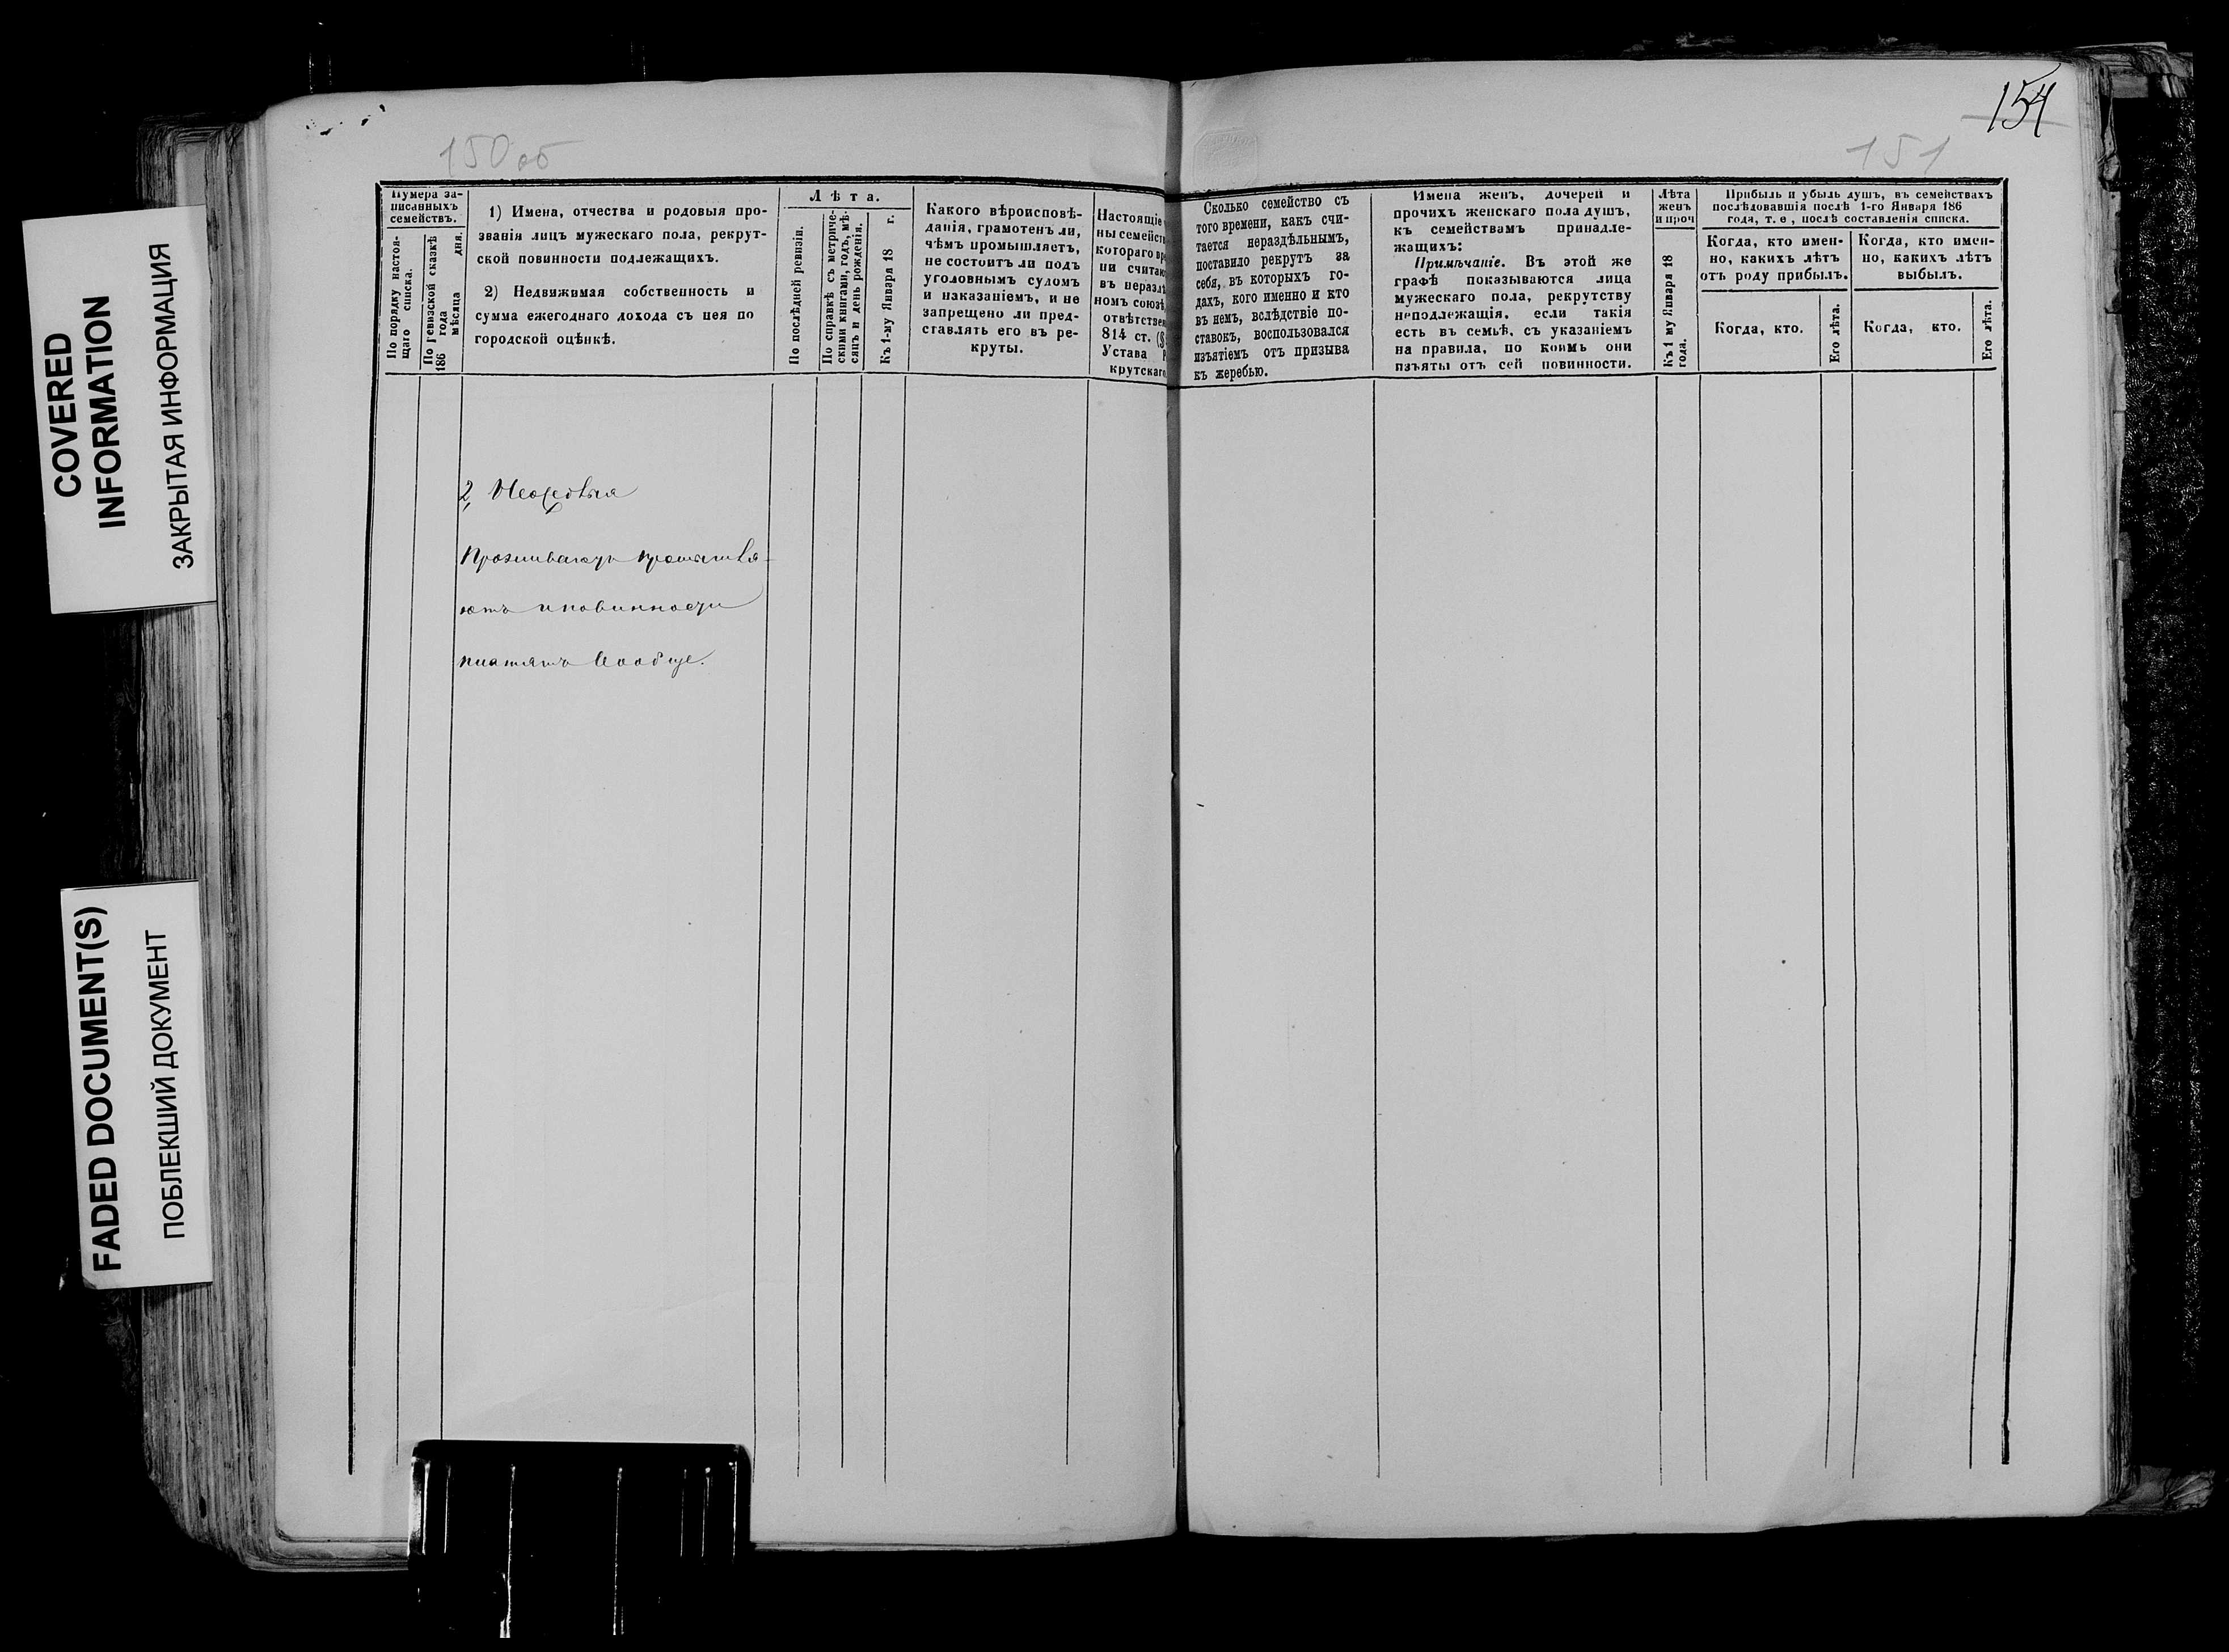 154
150 об
151
COVERED
INFORMATION
ЗАКРЫТАЯ ИНФОРМАЦИЯ
FADED DOCUMENT(S)
ПОБЛЕКШИЙ ДОКУМЕНТ
Нумера за-
писанныхъ
семействъ.
По порядку настоя-
щаго списка.
По ревизской сказкѣ
186 года
мѣсяца дня.
1) Имена, отчества и родовыя про-
званія лицъ мужескаго пола, рекрут-
ской повинности подлежащихъ.
2) Недвижимая собственность и
сумма ежегоднаго дохода съ нея по
городской оцѣнкѣ.
Лѣта.
По послѣдней ревизіи.
По справкѣ съ метриче-
скими книгами, годъ, мѣ-
сяцъ и день рожденія.
Къ 1-му Января 18 г.
Какого вѣроисповѣ-
данія, грамотенъ ли,
чѣмъ промышляетъ,
не состоитъ ли подъ
уголовнымъ судомъ
и наказаніемъ, и не
запрещено ли пред-
ставлять его въ ре-
круты.
Настоящіе
ны семейст
котораго вр
ни считаю
въ нераздѣ
номъ союзѣ
отвѣтствен
814 ст. (§
Устава Р
крутскаго
Сколько семейство съ
того времени, какъ счи-
тается нераздѣльнымъ,
поставило рекрутъ за
себя, въ которыхъ го-
дахъ, кого именно и кто
въ немъ, вслѣдствіе по-
ставокъ, воспользовался
изъятіемъ отъ призыва
къ жеребью.
Имена женъ, дочерей и
прочихъ женскаго пола душъ,
къ семействамъ принадле-
жащихъ:
Примѣчаніе. Въ этой же
графѣ показываются лица
мужескаго пола, рекрутству
неподлежащія, если такія
есть въ семьѣ, съ указаніемъ
на правила, по коимъ они
изъяты отъ сей повинности.
Лѣта
женъ
и проч
Къ 1 му Января 18
года.
Прибыль и убыль душъ, въ семействахъ
послѣдовавшія послѣ 1-го Января 186
года, т. е., послѣ составленія списка.
Когда, кто имен-
но, какихъ лѣтъ
отъ роду прибылъ.
Когда, кто.
Его лѣта.
Когда, кто имен-
но, какихъ лѣтъ
выбылъ.
Когда, кто.
Его лѣта.
2,
Проживаютъ промышля-
ютъ и повинности
платятъ вообще.